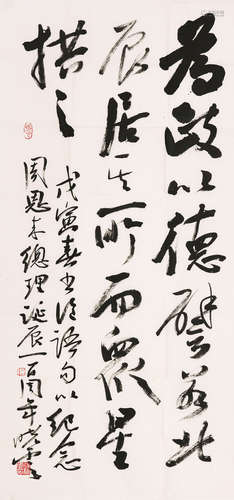 為政以德譬若北
辰居其所而眾星
拱之
戊寅春書論語句以紀念
周恩来總理誕辰一百周年